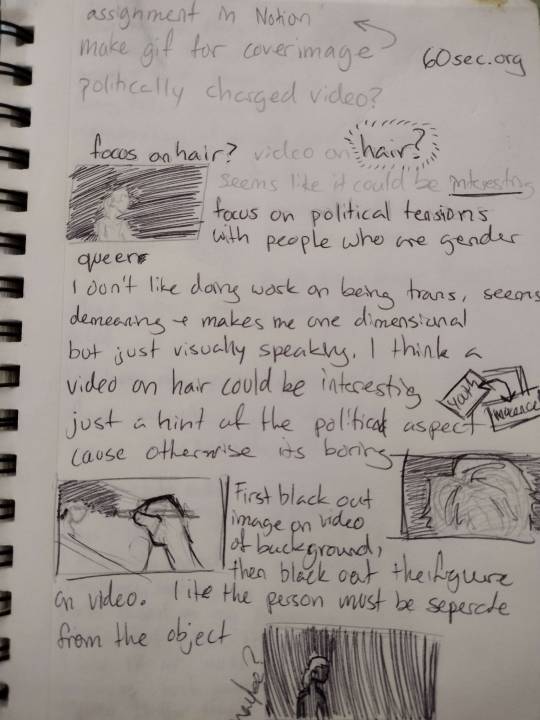 assignment in Notion
make gif for coverimage
60sec.org
politically charged video?
focus on hair? video on hair?
seems like it could be interesting
focus on political tensions
with people who are gender
queer
I don't like doing work on being trans, seems
demeaning + makes me one dimensional
but just visually speaking, I think a
video on hair could be interestig
youth
just a hint of the political aspect
cause otherwise its boring
First black out
image on video
of background,
then black out the figure
on video. like the person must be seperate
from the object
maybe?